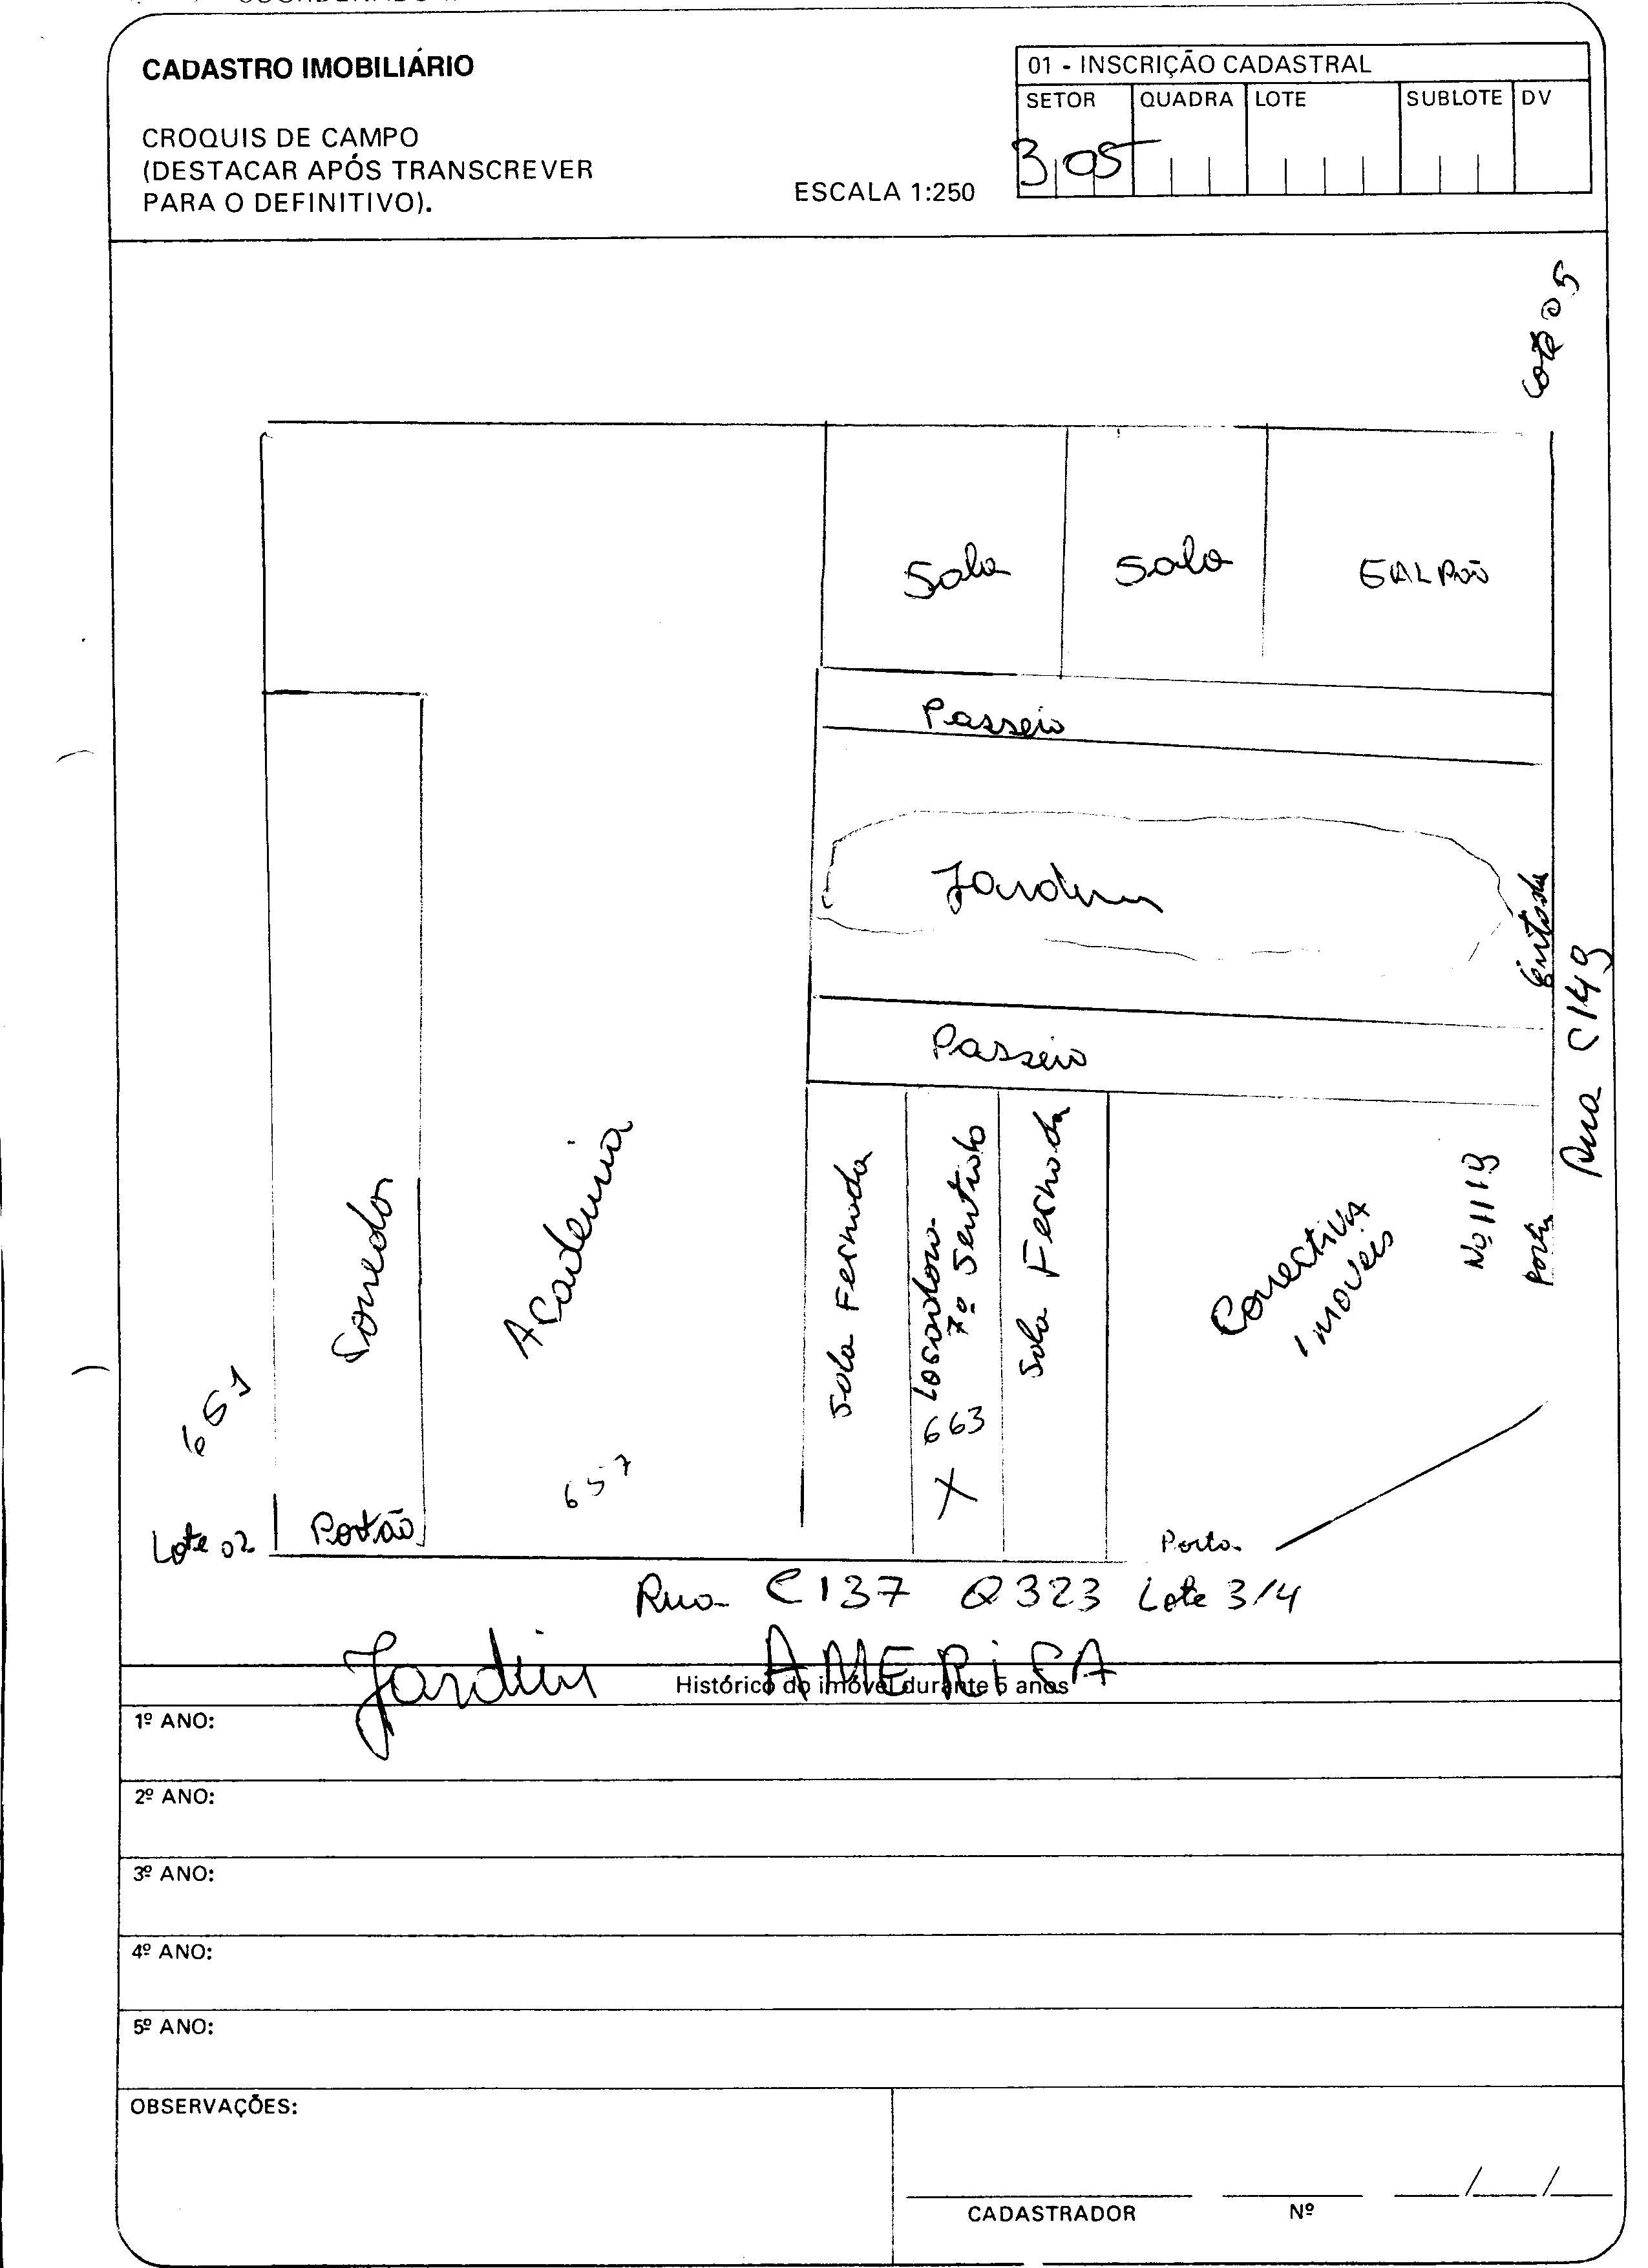 CADASTRO IMOBILIÁRIO
CROQUIS DE CAMPO
(DESTACAR APÓS TRANSCREVER
PARA O DEFINITIVO).
ESCALA 1:250
01 - INSCRIÇÃO CADASTRAL
SETOR QUADRA LOTE SUBLOTE DV
3 05
Lote 05
Sala
Sala
GALPÃO
Passeio
Jardim
Rua C149
Passeio
Academia
657
Sala Fechada
7º Sentido
663
X
Sala Fechada
Conectiva
imoveis
Nº 1119
Porta
Lote 02
Portão
Porta
Rua C137 Q323 Lote 3/4
Jardim AMERICA
Histórico do imóvel durante 5 anos
1º ANO:
2º ANO:
3º ANO:
4º ANO:
5º ANO:
OBSERVAÇÕES:
CADASTRADOR Nº